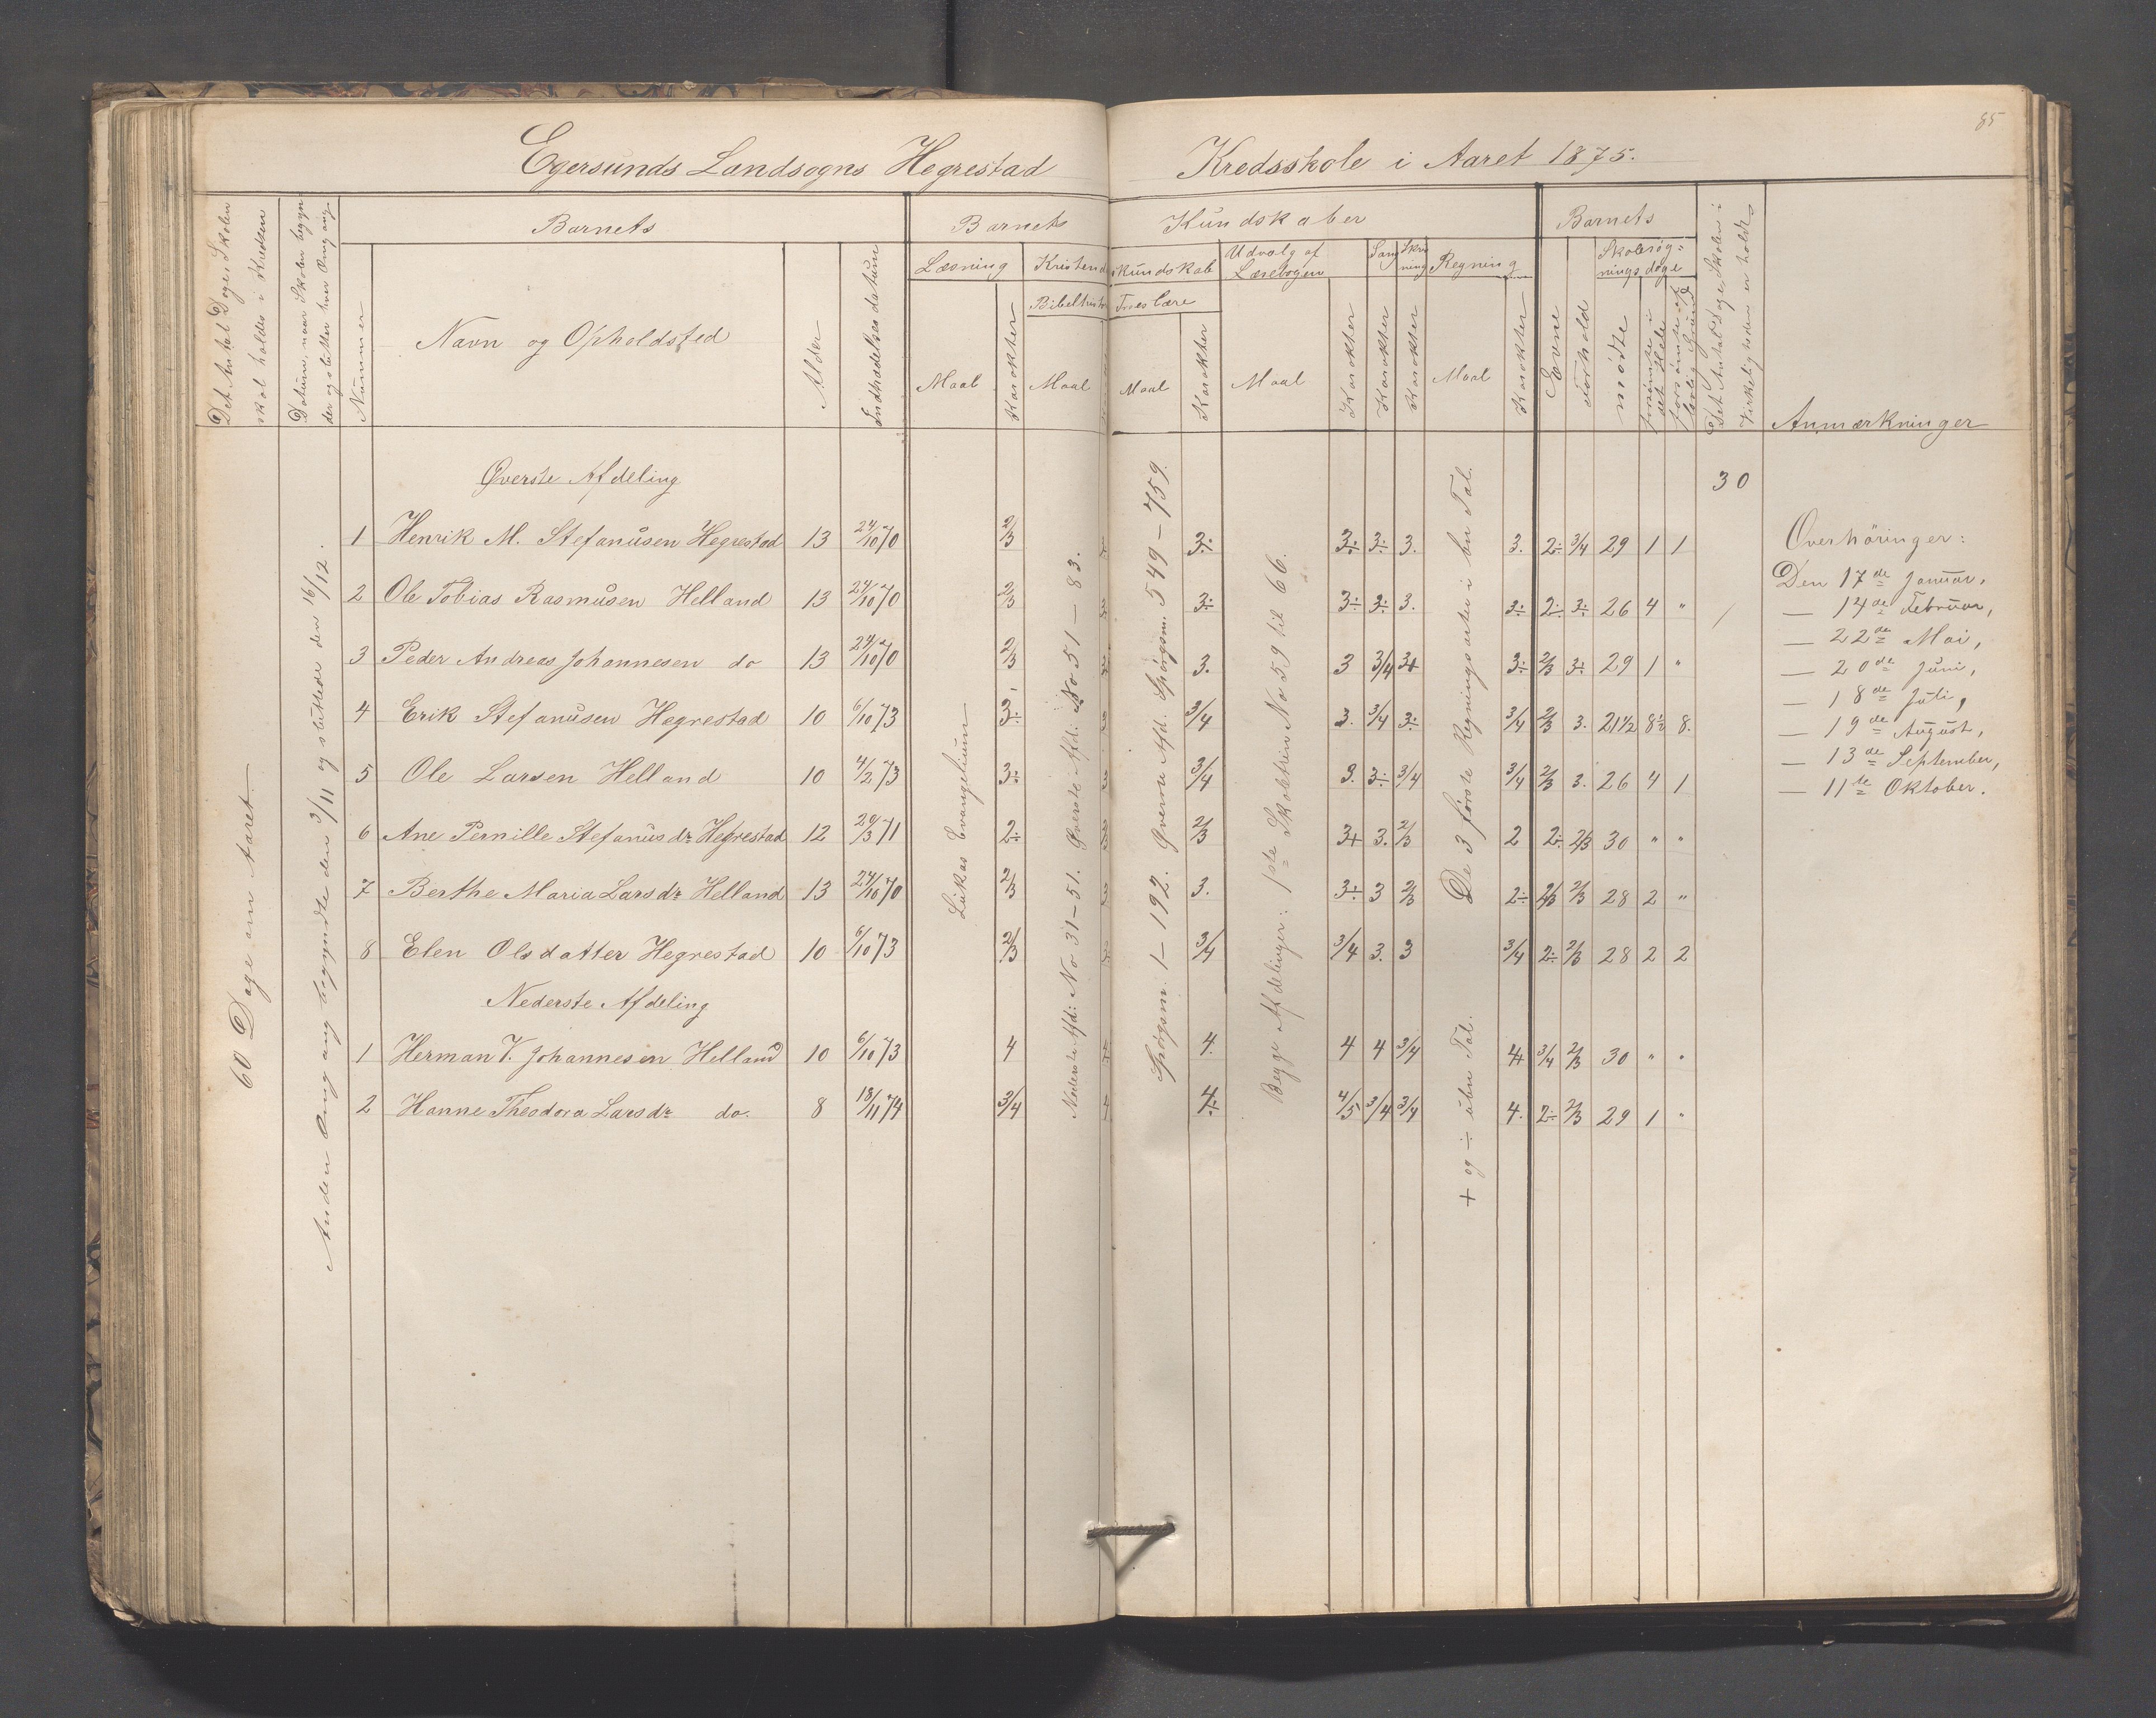 85
Egersunds Landsogns Hegrestad Kredsskole i Aaret 1875.
Det Antal Dage, Skolen skal holdes i Kredsen
Datum, naar Skolen begynder og slutter hver Omgang.
Barnets
Nummer
Navn og Opholdsted
Alder
Indtrædelsesdatum
Barnets Kundskaber
Læsning
Maal
Karakter
Kristendomskundskab
Bibelhistorie
Maal
Troeslære
Maal
Karakter
Udvalg af Læsebogen
Maal
Karakter
Sang
Karakter
Skrivning
Karakter
Regning
Maal
Karakter
Barnets
Evne
Forhold
Skolesøgningsdage
mødte
forsømte i det Hele
forsømte af lovlig Grund
Det Antal Dage, Skolen i Virkeligheden er holdt
Anmærkninger
60 Dage om Aaret
Anden Omgang begyndte den 3/11 og sluttede den 16/12.
Lukas Evangelium
Nederste Afd: No 31-51. Øverste Afd: No 51-83.
Spørgsm. 1-192. Øverste Afd. Spørgsm. 549-759.
Begge Afdelinger: 1ste Skoletrin No 59 til 66.
De 3 første Regningsarter i ben Tal.
+ og ÷ i ubn Tal.
Øverste Afdeling
30
1 Henrik M. Stefanusen Hegrestad 13 24/10 70 2/3 3÷ 3÷ 3÷ 3. 3. 2÷ 3/4 29 1 1
2 Ole Tobias Rasmusen Helland 13 24/10 70 2/3 3÷ 3÷ 3÷ 3. 3÷ 2÷ 3÷ 26 4 "
3 Peder Andreas Johannesen do 13 24/10 70 2/3 3. 3 3/4 3+ 3÷ 2/3 3÷ 29 1 "
4 Erik Stefanusen Hegrestad 10 6/10 73 3÷ 3/4 3. 3/4 3÷ 3/4 2/3 3. 21 1/2 8 1/2 8.
5 Ole Larsen Helland 10 4/2 73 3÷ 3/4 3. 3÷ 3/4 3/4 2/3 3. 26 4 1
6 Ane Pernille Stefanusdr Hegrestad 12 29/3 71 2÷ 2/3 3+ 3. 2/3 2 2÷ 2/3 30 " "
7 Berthe Maria Larsdr Helland 13 24/10 70 2/3 3. 3÷ 3 2/3 2÷ 2/3 2/3 28 2 "
8 Elen Olsdatter Hegrestad 10 6/10 73 2/3 3/4 3/4 3. 3 3/4 2÷ 2/3 28 2 2
Nederste Afdeling
1 Herman V. Johannesen Helland 10 6/10 73 4 4. 4 4 3/4 4+ 3/4 2/3 30 " "
2 Hanne Theodora Larsdr do. 8 18/11 74 3/4 4÷ 4/5 3/4 3/4 4. 2÷ 2/3 29 1 "
Overhøringer:
Den 17de Januar,
— 14de Februar,
— 22de Mai,
— 20de Juni,
— 18de Juli,
— 19de August,
— 13de September,
— 11te Oktober.